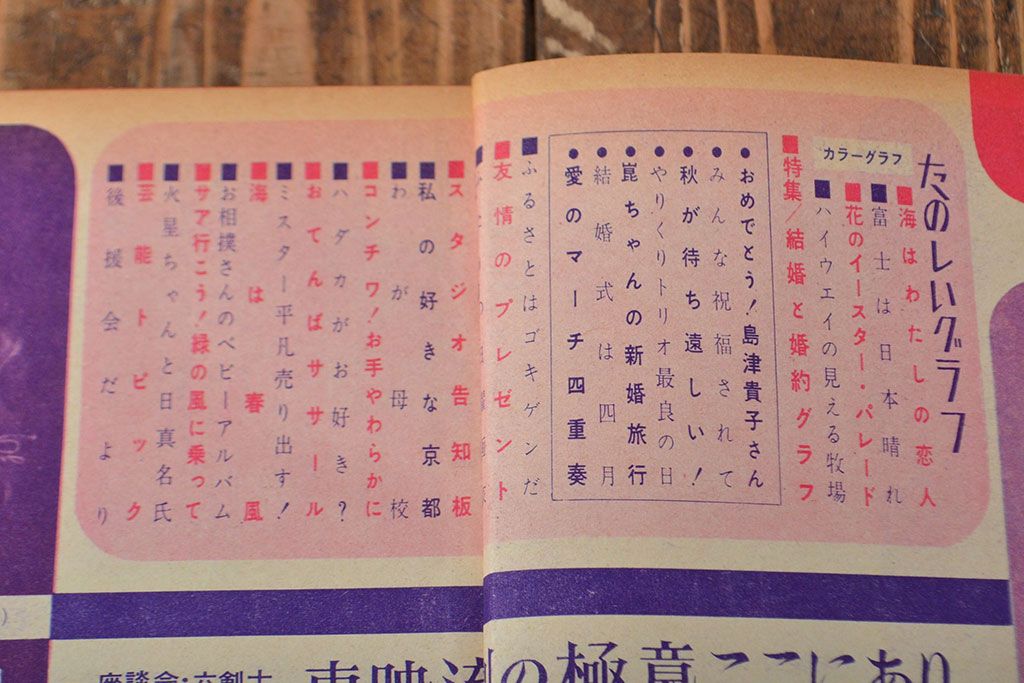 たのしいグラフ
カラーグラフ
■海はわたしの恋人
■富士は日本晴れ
■花のイースター・パレード
■ハイウエイの見える牧場
■特集/結婚と婚約グラフ
●おめでとう!島津貴子さん
●みんな祝福されて
●秋が待ち遠しい!
●やりくりトリオ最良の日
●崑ちゃんの新婚旅行
●結婚式は四月
●愛のマーチ四重奏
■ふるさとはゴキゲンだ
■友情のプレゼント
■スタジオ告知板
■私の好きな京都
■わが母校
■コンチワ!お手やわらかに
■ハダカがお好き?
■おてんばササール
■ミスター平凡売り出す!
■海は春風
■お相撲さんのベビーアルバム
■サア行こう!緑の風に乗って
■火星ちゃんと日真名氏
■芸能トピック
■後援会だより
座談会・六剣士
東映流の極意ここにあり